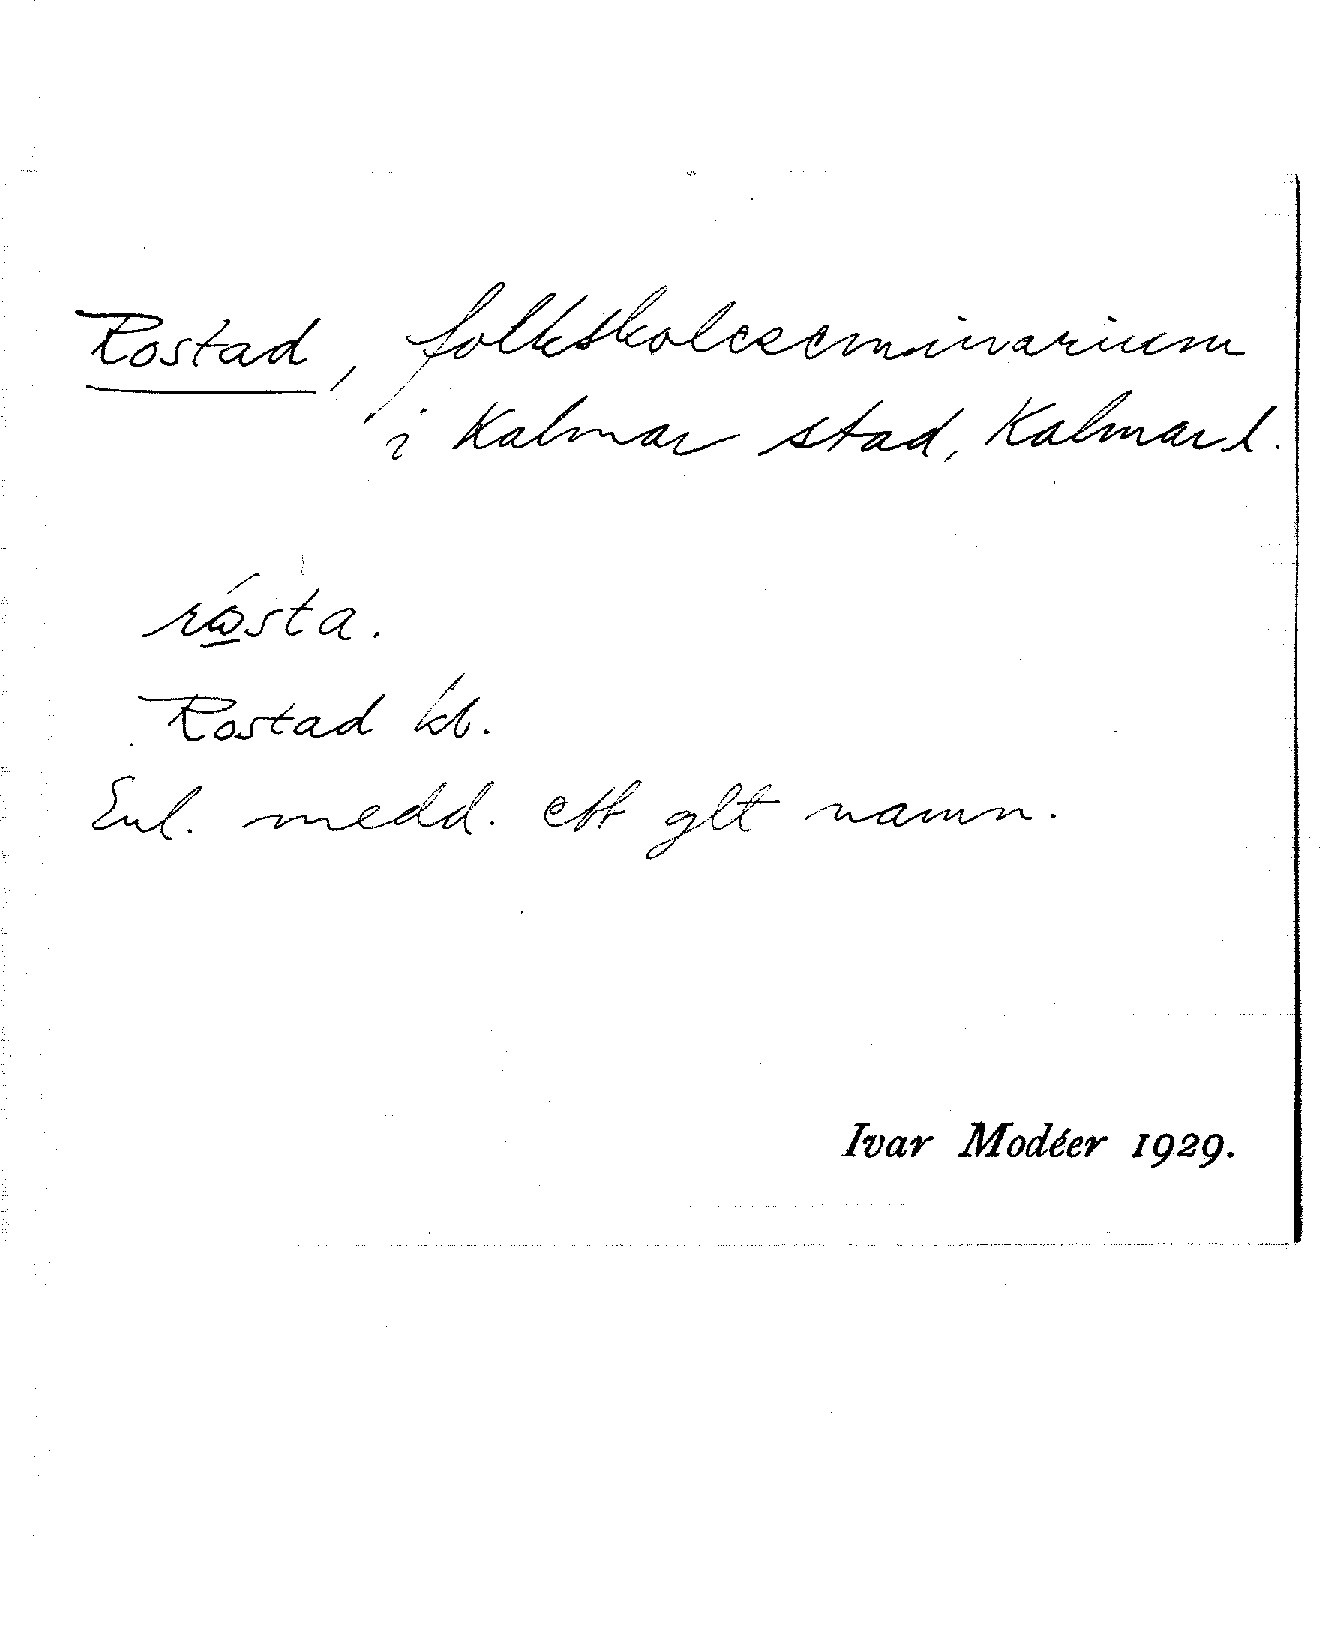 Rostad, folkskoleseminarium
i Kalmar stad, Kalmar l.
Rostad kb.
Enl. medd. ett glt namn.
Ivar Modéer 1929.